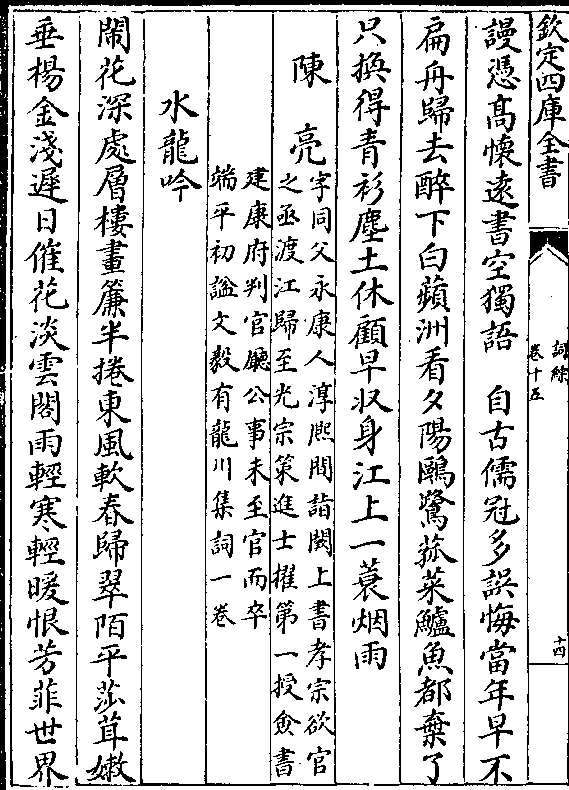 欽定四庫全書
詞綜
卷十五
十四
謾憑高懷逺書空獨語　自古儒冠多誤悔當年早不
扁舟歸去醉下白蘋洲看夕陽鷗鷺菰菜鱸魚都棄了
只換得青衫塵土休顧早收身江上一蓑烟雨
陳亮
字同父永康人淳熙間詣闕上書孝宗欲官
之亟渡江歸至光宗策進士擢第一授僉書
建康府判官廳公事未至官而卒
端平初諡文毅有龍川集詞一卷
水龍吟
鬧花深處層樓畫簾半捲東風軟春歸翠陌平莎茸嫩
垂楊金淺遲日催花淡雲閣雨輕寒輕暖恨芳菲世界